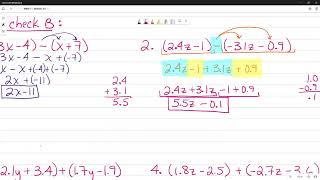 check B:
3x-4) - (x+7)
3x-4) + (-x)+(-7)
x - x +(-4)+(-7)
2x +(-11)
2x-11
2.4
+3.1
5.5
2. (2.4z-1) - (-3.1z-0.9)
2.4z-1+3.1z+0.9
2.4z+3.1z-1+0.9
5.5z-0.1
1.0
-0.9
.1
2.1y+3.4)+(1.7y-1.9)
4. (1.8z-2.5)+(-2.7z-3.